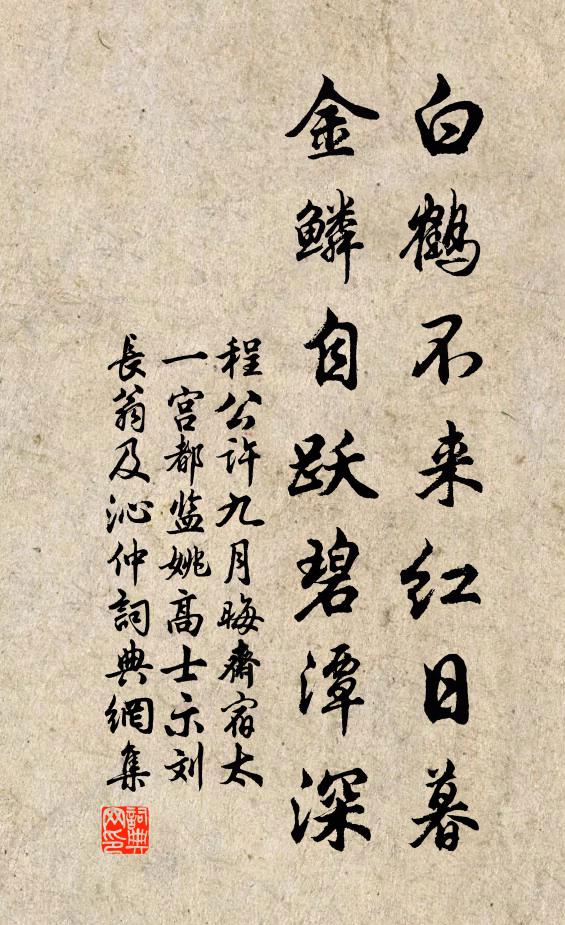 白鹤不来红日暮
金鳞自跃碧潭深
程公许九月晦斋宿太
一宫都监姚高士示刘
长翁及沁仲詞典網集
詞典
网印